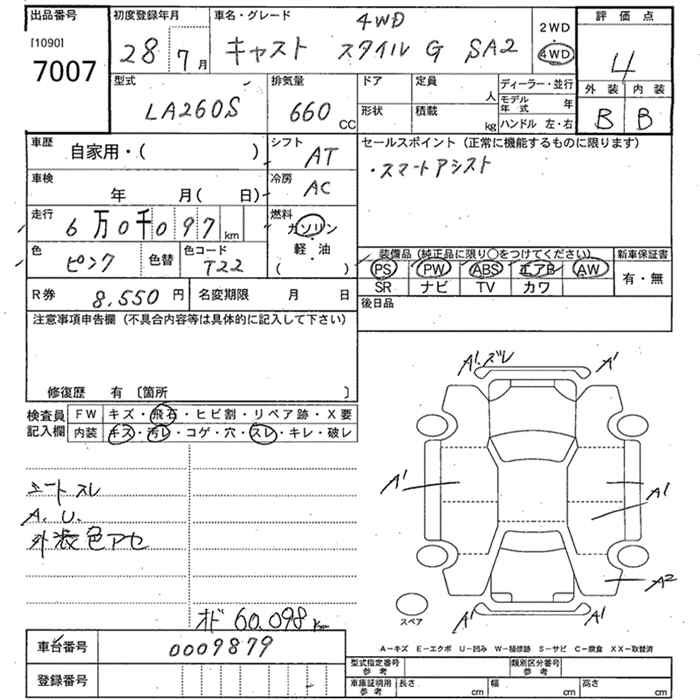 出品番号
[1090]
7007
初度登録年月
28 7月
車名・グレード
4WD
キャスト スタイル G SA2
2WD
4WD
評価点
4
外装 内装
B B
型式
LA260S
排気量
660 CC
ドア
形状
定員
人
積載
kg
ディーラー・並行
モデル年式 年
ハンドル 左・右
車歴
自家用・( )
シフト
AT
セールスポイント (正常に機能するものに限ります)
・スマートアシスト
車検
年 月( 日)
冷房
AC
走行
6万0千097km
燃料
ガソリン
・
軽・油
( )
色
ピンク
色替
色コード
T22
装備品 (純正品に限り○をつけてください)
PS PW ABS エアB AW
SR ナビ TV カワ
新車保証書
有・無
R券
8,550円
名変期限 月 日
後日品
注意事項申告欄 (不具合内容等は具体的に記入して下さい)
修復歴 有 〔箇所 〕
検査員記入欄
FW キズ・飛石・ヒビ割・リペア跡・X要
内装 キズ・汚レ・コゲ・穴・スレ・キレ・破レ
シートスレ
A. U.
外装色アセ
オド 60,098 Km
車台番号
0009879
登録番号
A¹・ズレ A¹
A¹ A¹
A²
スペア
A¹ A¹
A−キズ E−エクボ U−凹み W−補修跡 S−サビ C−腐食 XX−取替済
型式指定番号参考
類別区分番号参考
車庫証明用参考 長さ cm 幅 cm 高さ cm